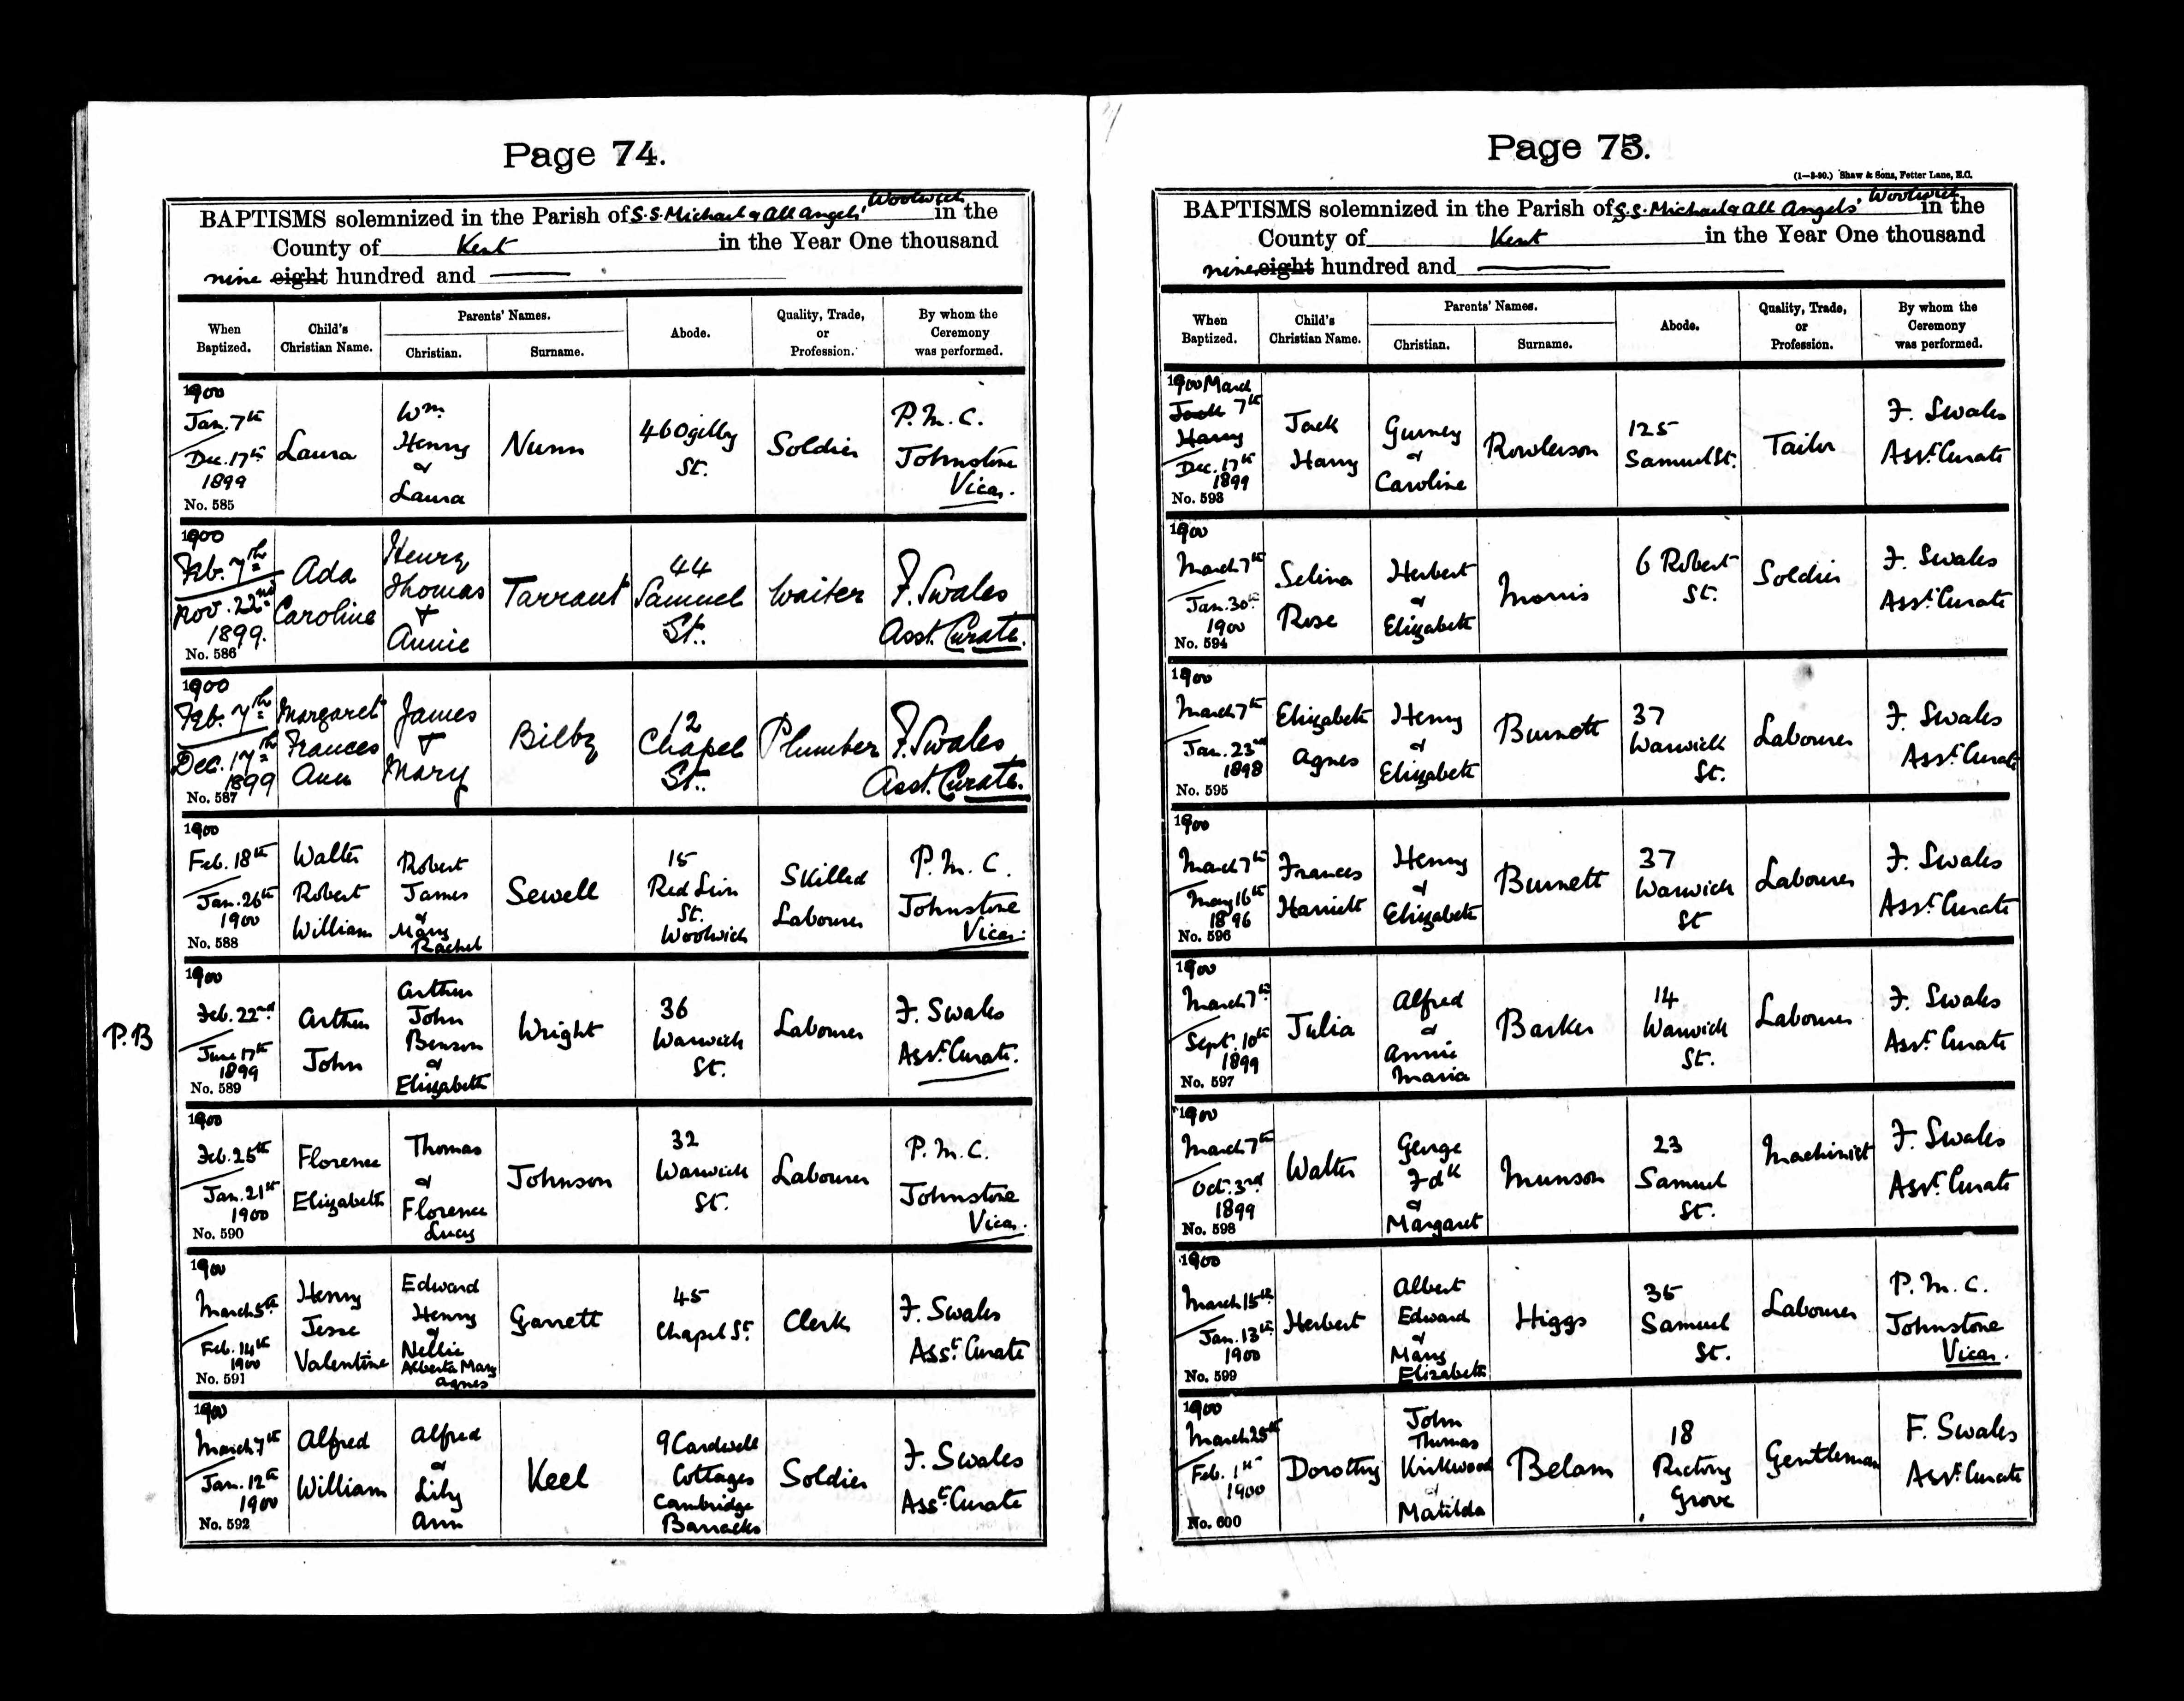 Page 74.
BAPTISMS solemnized in the Parish of S.S. Michael & All Angels' Woolwich in the
County of Kent in the Year One thousand
nine eight hundred and
When Baptized.
Child's Christian Name.
Parents' Names.
Christian.
Surname.
Abode.
Quality, Trade, or Profession.
By whom the Ceremony was performed.
1900
Jan. 7th
Dec. 17th
1899
No. 585
Laura
Wm.
Henry
&
Laura
Nunn
46 Ogilby
St.
Soldier
P. M. C.
Johnstone
Vicar.
1900
Feb. 7th
Nov. 22nd
1899.
No. 586
Ada
Caroline
Henry
Thomas
+
Annie
Tarrant
44
Samuel
St.
Waiter
F. Swales
Asst. Curate.
1900
Feb. 7th
Dec. 17th
1899
No. 587
Margaret
Frances
Ann
James
+
Mary
Bilby
12
Chapel
St.
Plumber
F. Swales
Asst. Curate.
1900
Feb. 18th
Jan. 26th
1900
No. 588
Walter
Robert
William
Robert
James
&
Mary
Rachel
Sewell
15
Red Lion
St.
Woolwich
Skilled
Labourer
P. M. C.
Johnstone
Vicar.
P.B
1900
Feb. 22nd
June 17th
1899
No. 589
Arthur
John
Arthur
John
Benson
&
Elizabeth
Wright
36
Warwick
St.
Labourer
F. Swales
Asst. Curate.
1900
Feb. 25th
Jan. 21st
1900
No. 590
Florence
Elizabeth
Thomas
&
Florence
Lucy
Johnson
32
Warwick
St.
Labourer
P. M. C.
Johnstone
Vicar.
1900
March 5th
Feb. 14th
1900
No. 591
Henry
Jesse
Valentine
Edward
Henry
&
Nellie
Alberta Mary
Agnes
Garrett
45
Chapel St.
Clerk
F. Swales
Asst. Curate
1900
March 7th
Jan. 12th
1900
No. 592
Alfred
William
Alfred
&
Lily
Ann
Keel
9 Cardwell
Cottages
Cambridge
Barracks
Soldier
F. Swales
Asst. Curate
Page 75.
(1—3-90.) Shaw & Sons, Fetter Lane, E.C.
BAPTISMS solemnized in the Parish of S.S. Michael & All Angels' Woolwich in the
County of Kent in the Year One thousand
nine eight hundred and
When Baptized.
Child's Christian Name.
Parents' Names.
Christian.
Surname.
Abode.
Quality, Trade, or Profession.
By whom the Ceremony was performed.
1900 March
Jack 7th
Harry
Dec. 17th
1899
No. 593
Jack
Harry
Gurney
&
Caroline
Rowlerson
125
Samuel St.
Tailor
F. Swales
Asst. Curate
1900
March 7th
Jan. 30th
1900
No. 594
Selina
Rose
Herbert
&
Elizabeth
Morris
6 Robert
St.
Soldier
F. Swales
Asst. Curate
1900
March 7th
Jan. 23rd
1898
No. 595
Elizabeth
Agnes
Henry
&
Elizabeth
Burnett
37
Warwick
St.
Labourer
F. Swales
Asst. Curate
1900
March 7th
May 16th
1896
No. 596
Frances
Harriett
Henry
&
Elizabeth
Burnett
37
Warwick
St
Labourer
F. Swales
Asst. Curate
1900
March 7th
Sept. 10th
1899
No. 597
Julia
Alfred
&
Annie
Maria
Barker
14
Warwick
St.
Labourer
F. Swales
Asst. Curate
1900
March 7th
Oct. 3rd
1899
No. 598
Walter
George
Fdk
&
Margaret
Munson
23
Samuel
St.
Machinist
F. Swales
Asst. Curate
1900
March 15th
Jan. 13th
1900
No. 599
Herbert
Albert
Edward
&
Mary
Elizabeth
Higgs
35
Samuel
St.
Labourer
P. M. C.
Johnstone
Vicar.
1900
March 25th
Feb. 1st
1900
No. 600
Dorothy
John
Thomas
Kirkwood
&
Matilda
Belam
18
Rectory
Grove
Gentleman
F. Swales
Asst. Curate